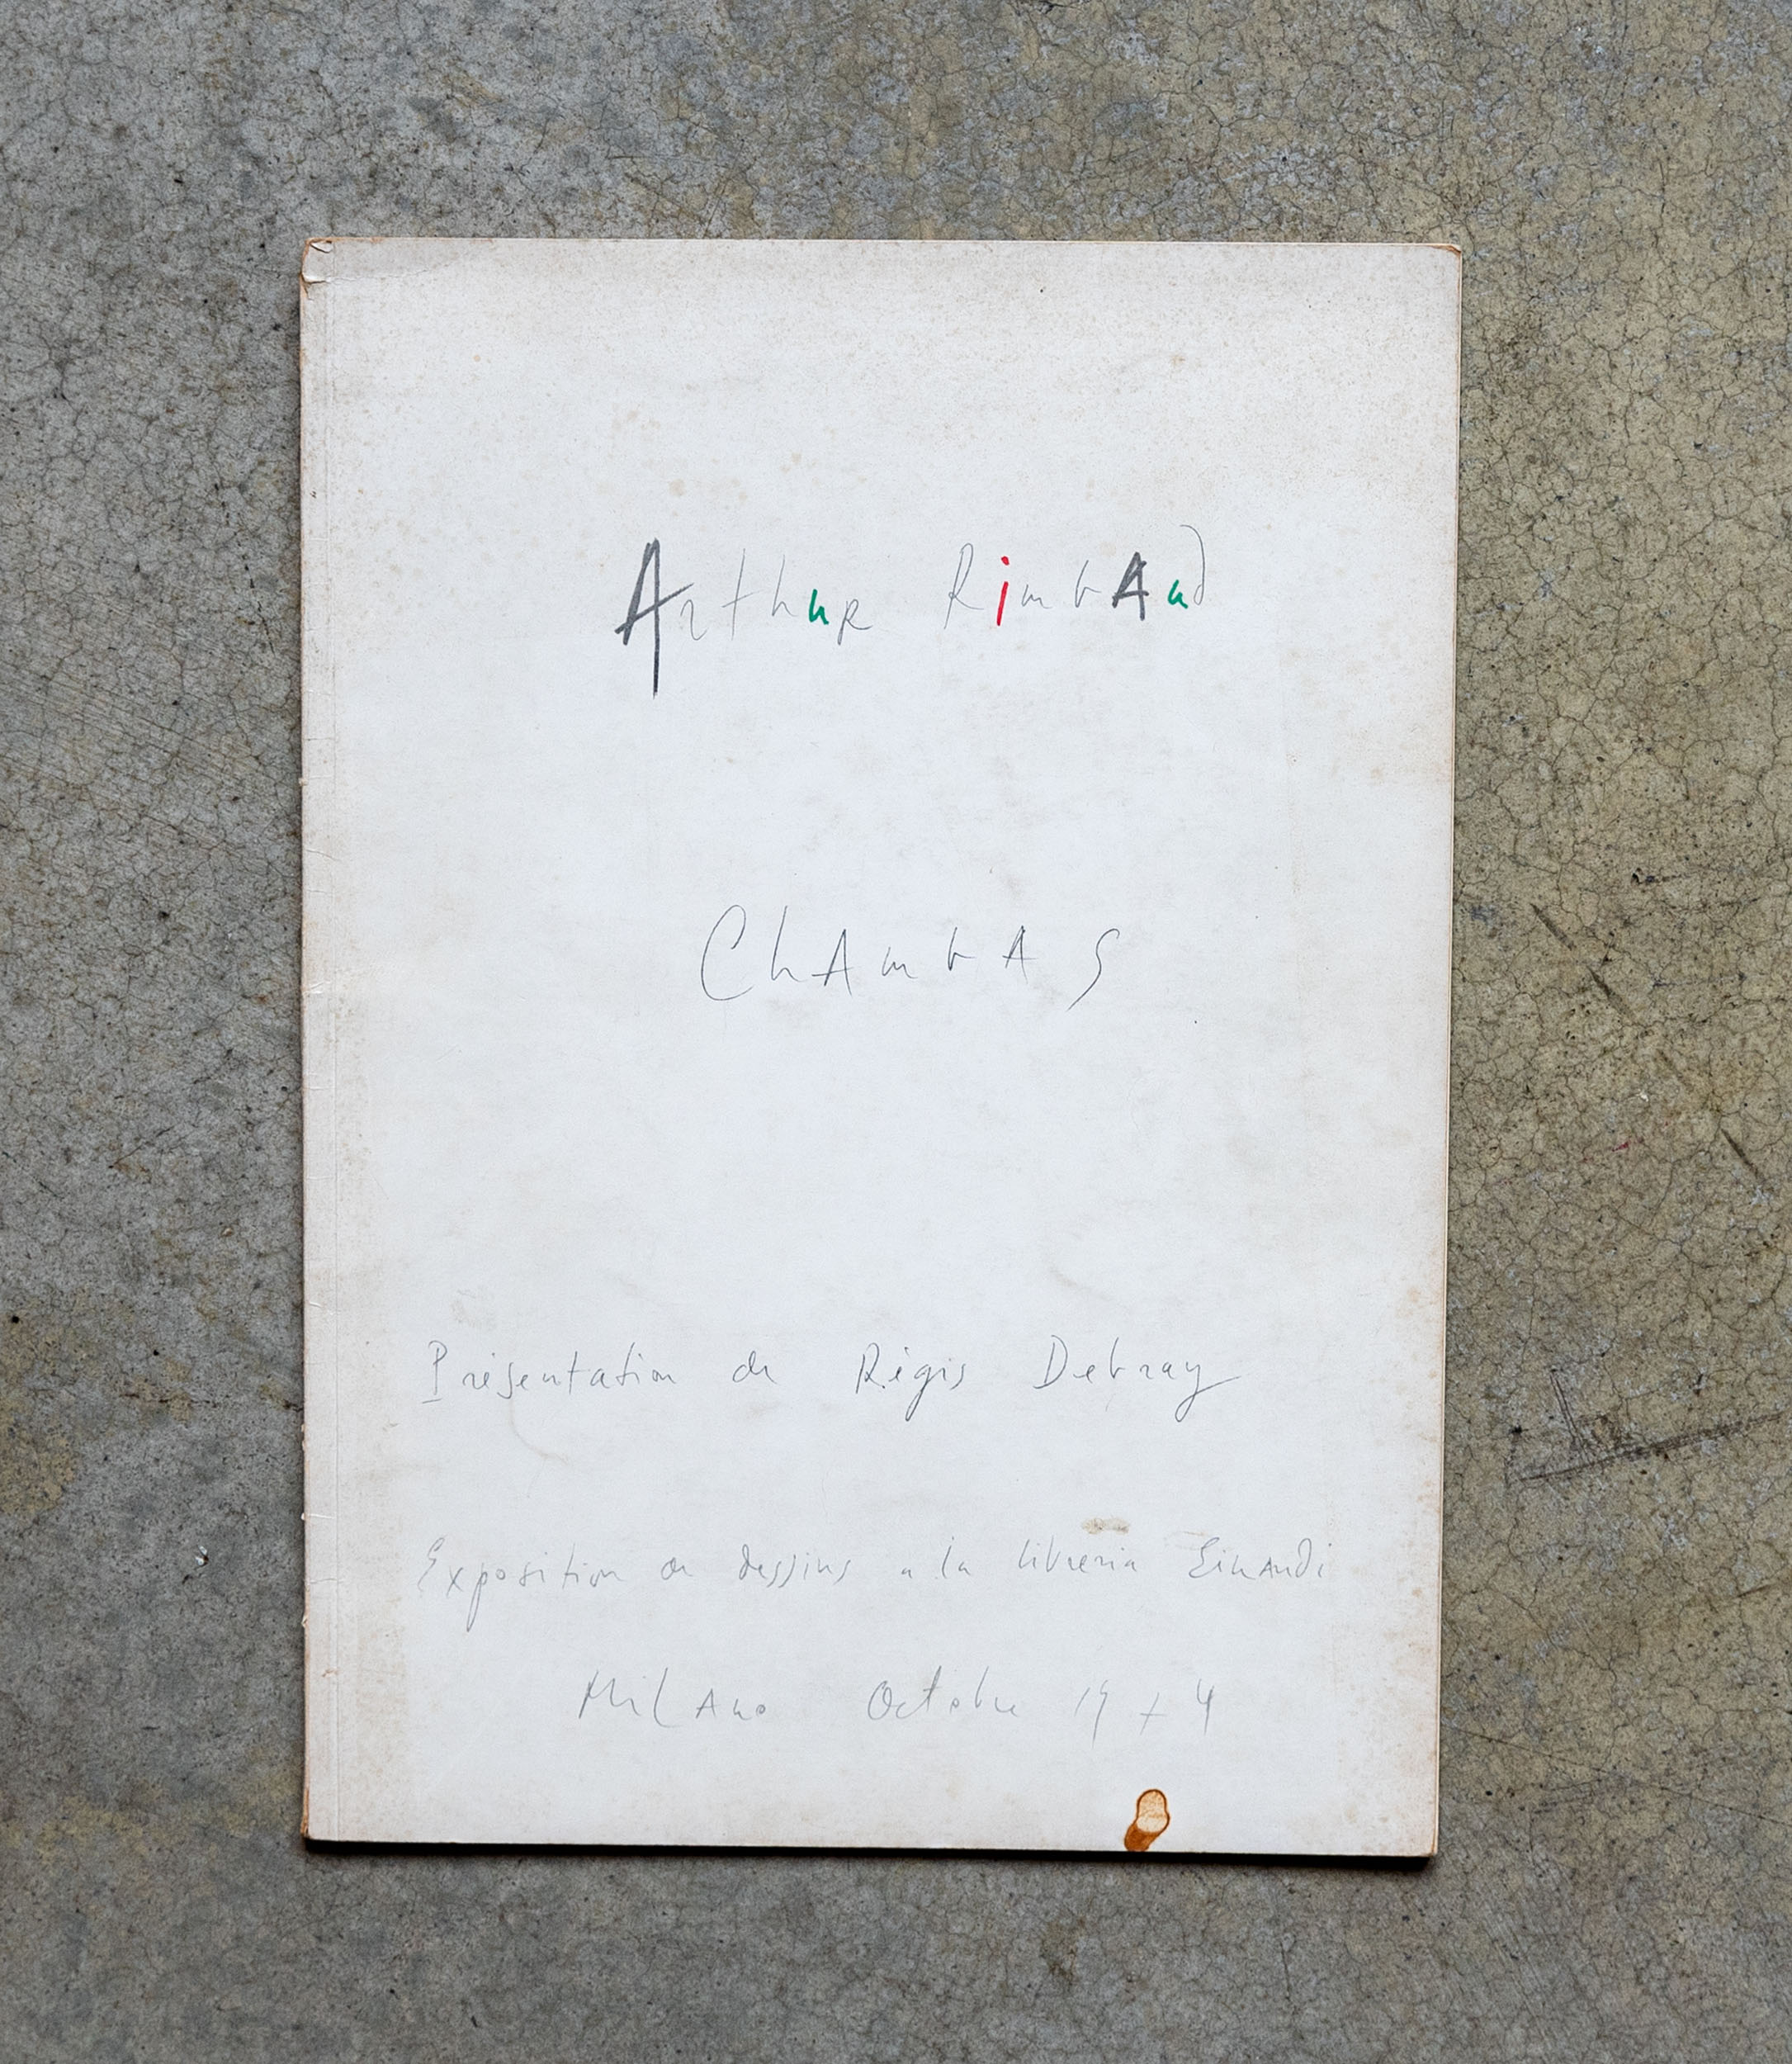 Arthur RimbAud
ChAmbAS
Présentation de Régis Debray
Exposition de dessins a la libreria EinAudi
MiLAno Octobre 1974